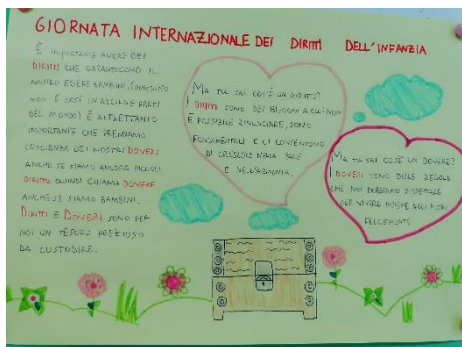 GIORNATA INTERNAZIONALE DEI DIRITTI DELL'INFANZIA
È IMPORTANTE AVERE DEI
DIRITTI CHE GARANTISCONO IL
NOSTRO ESSERE BAMBINI,
NON È COSÌ IN ALCUNE PARTI
DEL MONDO) È ALTRETTANTO
IMPORTANTE CHE PRENDIAMO
COSCIENZA DEI NOSTRI DOVERI
ANCHE SE SIAMO ANCORA PICCOLI
DIRITTO QUINDI CHIAMA DOVERE
ANCHE SE SIAMO BAMBINI.
DIRITTI E DOVERI SONO PER
NOI UN TESORO PREZIOSO
DA CUSTODIRE.
MA TU SAI COS'È UN DIRITTO?
I DIRITTI SONO DEI BISOGNI A CUI NON
È POSSIBILE RINUNCIARE, SONO
FONDAMENTALI E CI CONSENTONO
DI CRESCERE NELLA PACE
E NELL'ARMONIA.
MA TU SAI COS'È UN DOVERE?
I DOVERI SONO DELLE REGOLE
CHE NOI DOBBIAMO RISPETTARE
PER VIVERE INSIEME AGLI ALTRI
FELICEMENTE